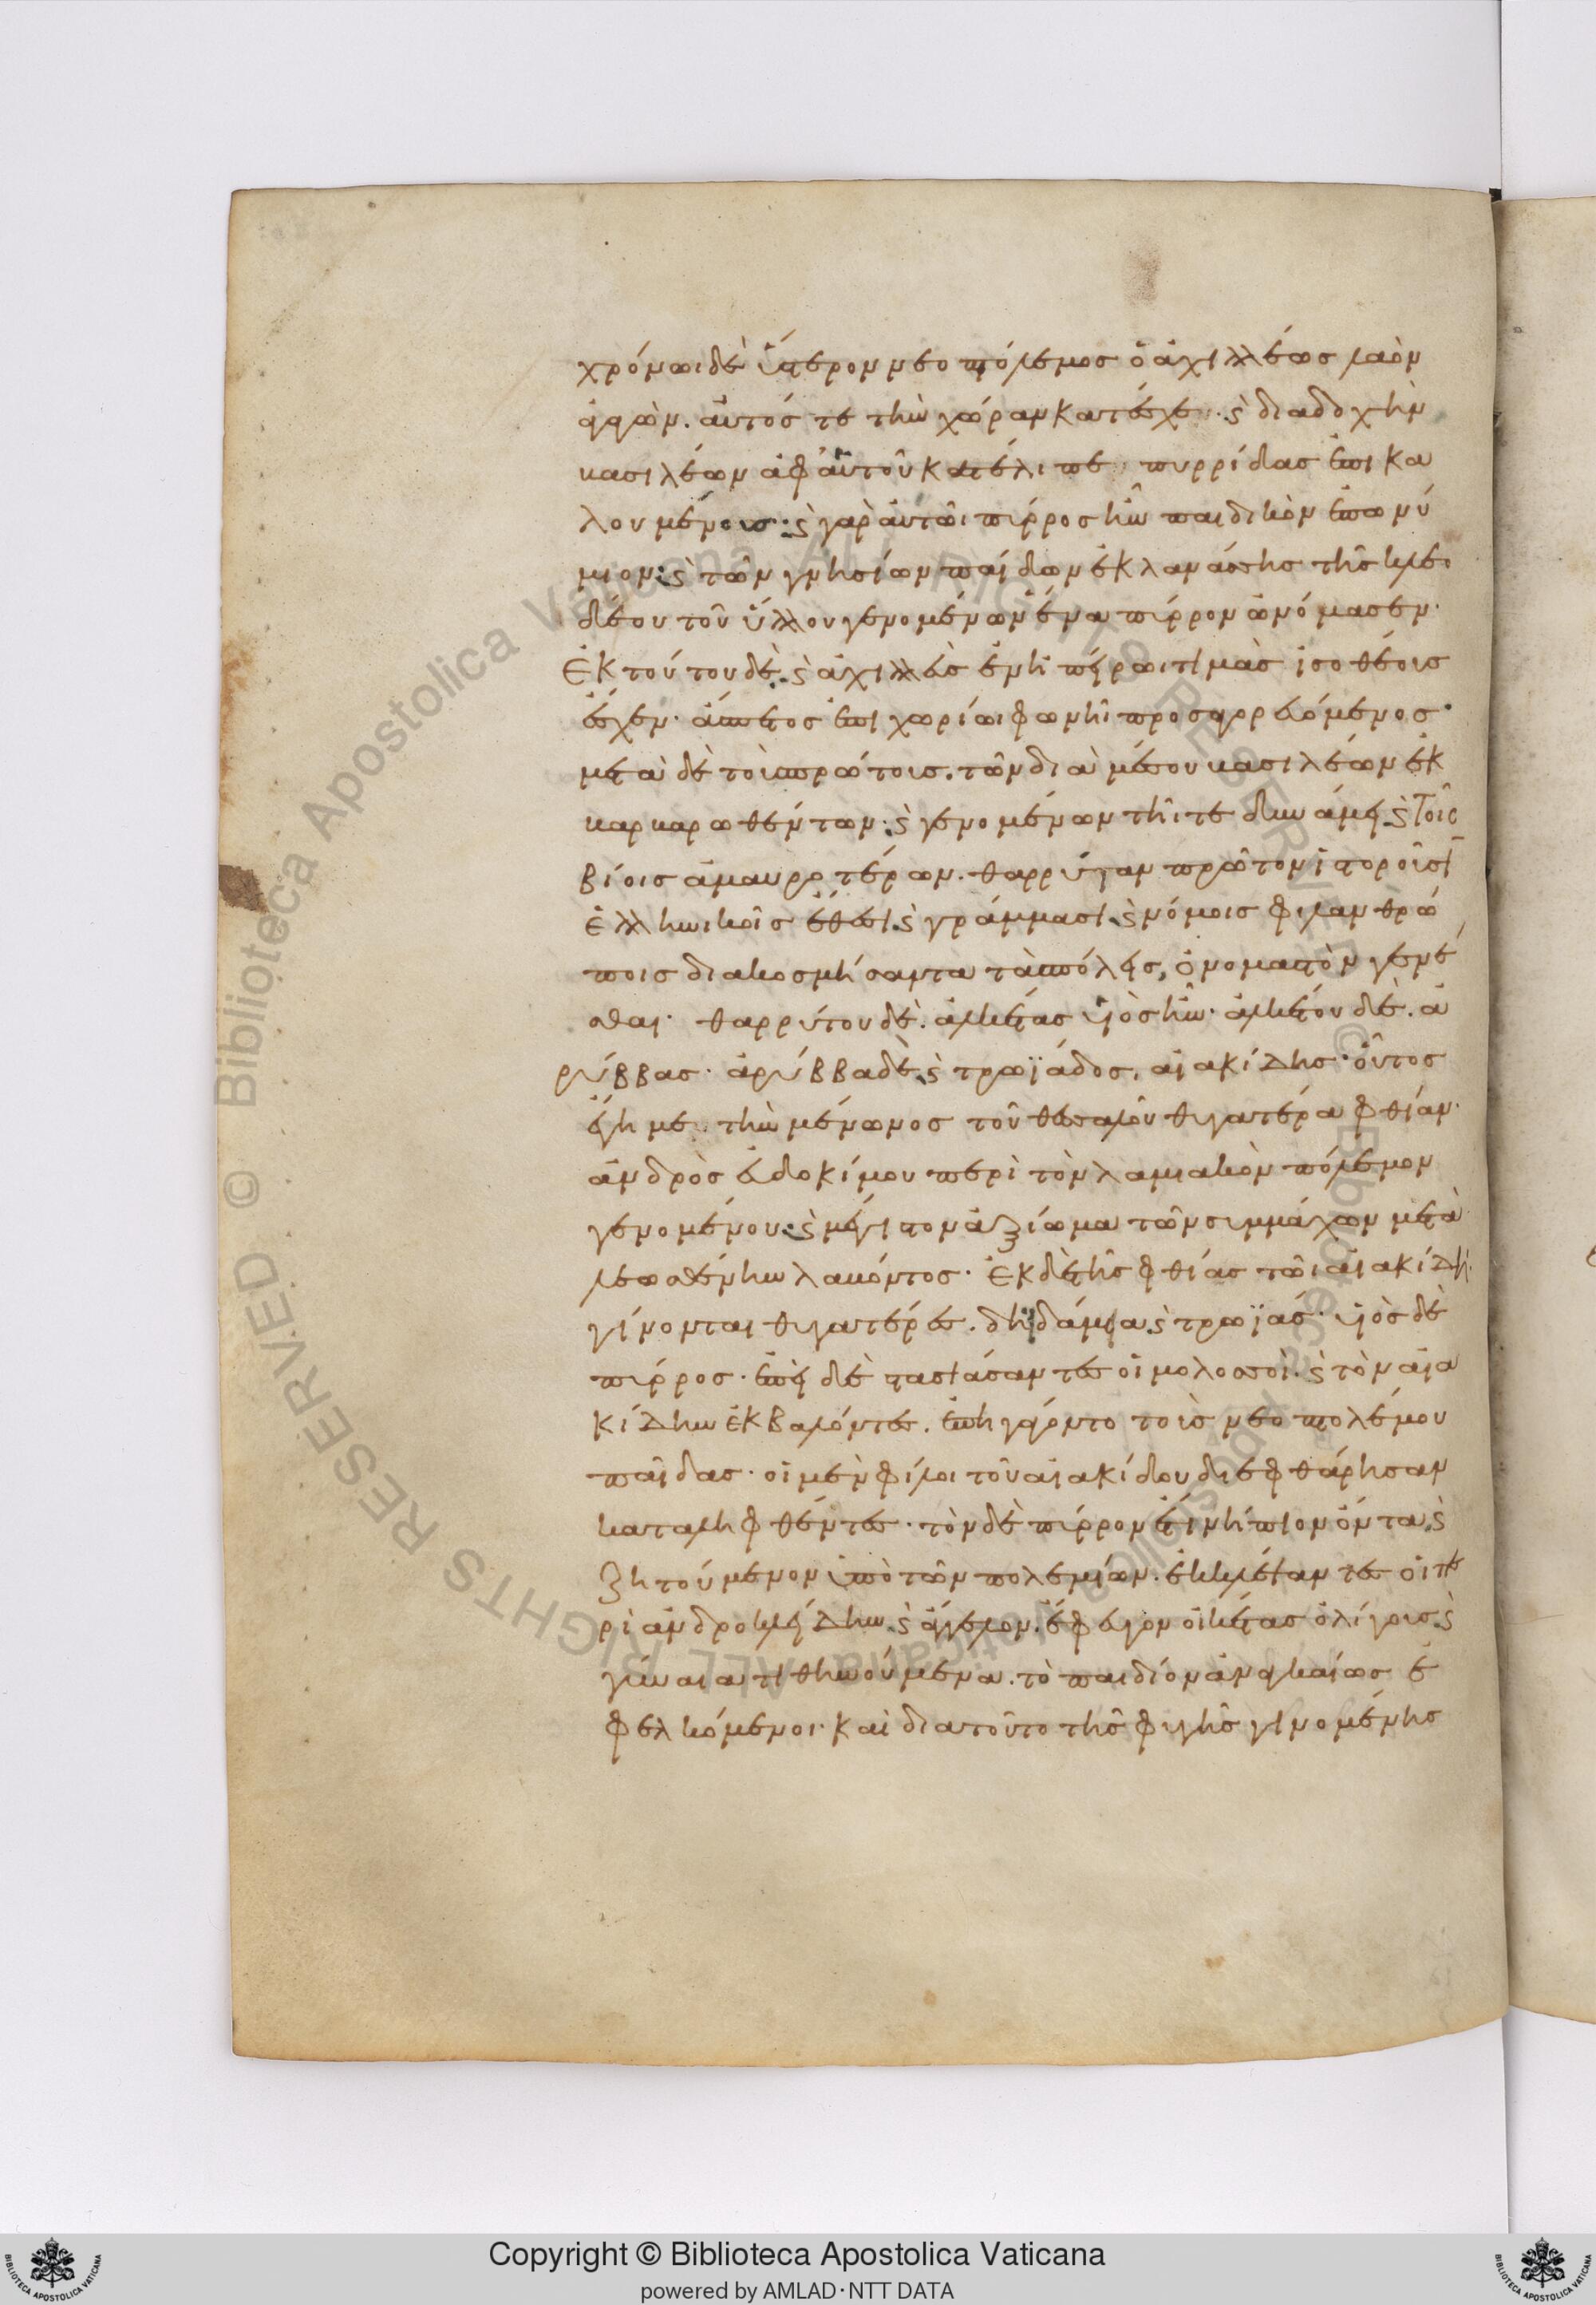 χρόνωι δὲ ὕστερον νεοπτόλεμος ὁ ἀχιλλέως λαὸν
ἀγαγὼν. αὐτός τε τὴν χώραν κατέσχε· ϗ διαδοχὴν
βασιλέων ἀφ᾽ αὑτοῦ κατέλιπε· πυρρίδας ἐπικα
λουμένους· ϗ γὰρ αὐτῶι πύρρος ἦν παιδικὸν ἐπωνύ
μιον· ϗ τῶν γνησίων παίδων ἐκ λανάσσης τῆς κλεο
δέου τοῦ ὕλλου γενομένων ἕνα πύρρον ὠνόμασεν·
Ἐκ τούτου δὲ ϗ ἀχιλλεὺς ἐν ἠπείρωι τιμὰς ἰσοθέους
ἔσχεν· ἄσπετος ἐπιχωρίωι φωνῆι προσαγορευόμενος·
μετὰ δὲ τοὺς πρώτους. τῶν διὰ μέσου βασιλέων ἐκ
βαρβαρωθέντων· ϗ γενομένων τῆι τε δυνάμει ϗ τοῖς
βίοις ἀμαυροτέρων. θαρρύταν πρῶτον ἱστοροῦσιν
ἑλληνικοῖς ἔθεσι ϗ γράμμασι ϗ νόμοις φιλανθρώ
ποις διακοσμήσαντα τὰς πόλεις, ὀνομαστὸν γενέ
σθαι· θαρρύτου δὲ. ἀλκέτας υἱὸς ἦν· ἀλκέτου δὲ. ἀ
ρύββας· ἀρύββα δὲ ϗ τρωϊάδος, αἰακίδης· οὗτος
ἔγημε τὴν μένωνος τοῦ θεσσαλοῦ θυγατέρα φθίαν·
ἀνδρὸς εὐδοκίμου περὶ τὸν λαμιακὸν πόλεμον
γενομένου· ϗ μέγιστον ἀξίωμα τῶν συμμάχων μετὰ
λεωσθένην λαβόντος· ἐκ δὲ τῆς φθίας τῶι αἰακίδηι
γίνονται θυγατέρες. δηϊδάμεια ϗ τρωϊάς· υἱὸς δὲ
πύρρος· ἐπεὶ δὲ στασιάσαντες οἱ μολοσσοὶ. ϗ τὸν αἰα
κίδην ἐκβαλόντες. ἐπηγάγοντο τοὺς νεοπτολέμου
παῖδας· οἱ μὲν φίλοι τοῦ αἰακίδου διεφθάρησαν
καταληφθέντες· τὸν δὲ πύρρον ἔτι νήπιον ὄντα ϗ
ζητούμενον ὑπὸ τῶν πολεμίων. ἐκκλέψαντες οἱ πε
ρὶ ἀνδροκλείδην ϗ ἄγγελον. ἔφευγον οἰκέτας ὀλίγους ϗ
γύναια τιθηνούμενα. τὸ παιδίον ἀναγκαίως ἐ
φελκόμενοι· καὶ διατοῦτο τῆς φυγῆς γινομένης
© Biblioteca Apostolica Vaticana ALL RIGHTS RESERVED
Copyright © Biblioteca Apostolica Vaticana
powered by AMLAD·NTT DATA